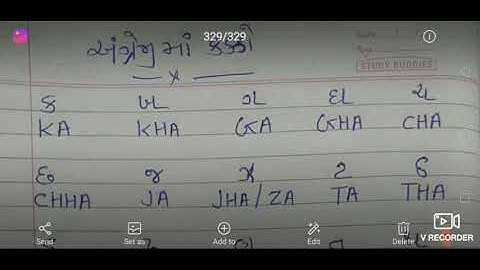 329/329
અંગ્રેજીમાં કક્કો
STUDY BUDDIES
ક ખ ગ ઘ ચ
KA KHA GA GHA CHA
છ જ ઝ ટ ઠ
CHHA JA JHA/ZA TA THA
Send Set as Add to Edit Delete
V RECORDER